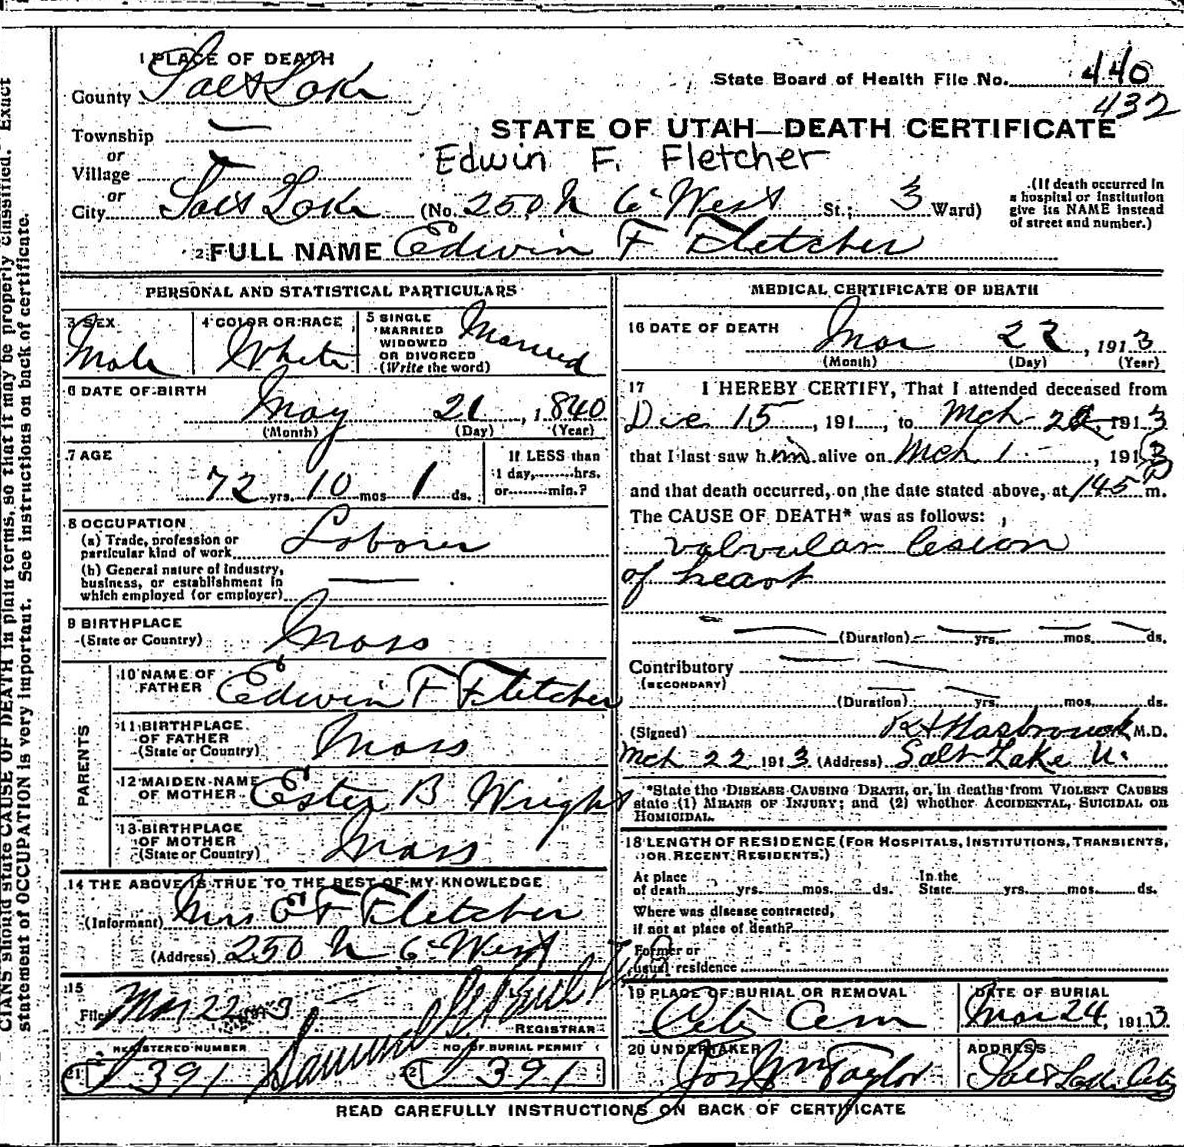 1 PLACE OF DEATH
County Salt Lake
State Board of Health File No. 440
432
Township
or
Village
or
STATE OF UTAH—DEATH CERTIFICATE
Edwin F. Fletcher
City Salt Lake (No. 250 N 6 West St.; 3 Ward)
(If death occurred in
a hospital or institution
give its NAME instead
of street and number.)
2 FULL NAME Edwin F Fletcher
PERSONAL AND STATISTICAL PARTICULARS
3 SEX
Male
4 COLOR OR RACE
White
5 SINGLE
MARRIED
WIDOWED
OR DIVORCED
(Write the word)
Married
6 DATE OF BIRTH
May 21, 1840
(Month) (Day) (Year)
7 AGE
72 yrs. 10 mos 1 ds.
If LESS than
1 day, hrs.
or min.?
8 OCCUPATION
(a) Trade, profession or
particular kind of work Laborer
(b) General nature of industry,
business, or establishment in
which employed (or employer)
9 BIRTHPLACE
(State or Country) Mass
PARENTS
10 NAME OF
FATHER Edwin F Fletcher
11 BIRTHPLACE
OF FATHER
(State or Country) Mass
12 MAIDEN NAME
OF MOTHER Ester B Wright
13 BIRTHPLACE
OF MOTHER
(State or Country) Mass
14 THE ABOVE IS TRUE TO THE BEST OF MY KNOWLEDGE
(Informant) Mrs E F Fletcher
(Address) 250 N 6 West
15
Filed Mar 22 1913
Samuel G. Paul
REGISTRAR
REGISTERED NUMBER
21 391
NO. OF BURIAL PERMIT
22 391
MEDICAL CERTIFICATE OF DEATH
16 DATE OF DEATH
Mar 22, 1913
(Month) (Day) (Year)
17 I HEREBY CERTIFY, That I attended deceased from
Dec 15, 191 , to Mch 22, 1913
that I last saw him alive on Mch 1, 1913
and that death occurred, on the date stated above, at 145 P m.
The CAUSE OF DEATH* was as follows:
valvular lesion
of heart
(Duration) yrs. mos. ds.
Contributory
(SECONDARY)
(Duration) yrs. mos. ds.
(Signed) Hasbrouck M.D.
Mch 22 1913 (Address) Salt Lake U.
*State the DISEASE CAUSING DEATH, or, in deaths from VIOLENT CAUSES
state (1) MEANS OF INJURY; and (2) whether ACCIDENTAL, SUICIDAL OR
HOMICIDAL.
18 LENGTH OF RESIDENCE (FOR HOSPITALS, INSTITUTIONS, TRANSIENTS,
OR RECENT RESIDENTS.)
At place
of death yrs. mos. ds.
In the
State yrs. mos. ds.
Where was disease contracted,
if not at place of death?
Former or
usual residence
19 PLACE OF BURIAL OR REMOVAL
City Cem
DATE OF BURIAL
Mar 24, 1913
20 UNDERTAKER
Jos Wm Taylor
ADDRESS
Salt Lake City
READ CAREFULLY INSTRUCTIONS ON BACK OF CERTIFICATE
CIANS should state CAUSE OF DEATH in plain terms, so that it may be properly classified. Exact
statement of OCCUPATION is very important. See instructions on back of certificate.